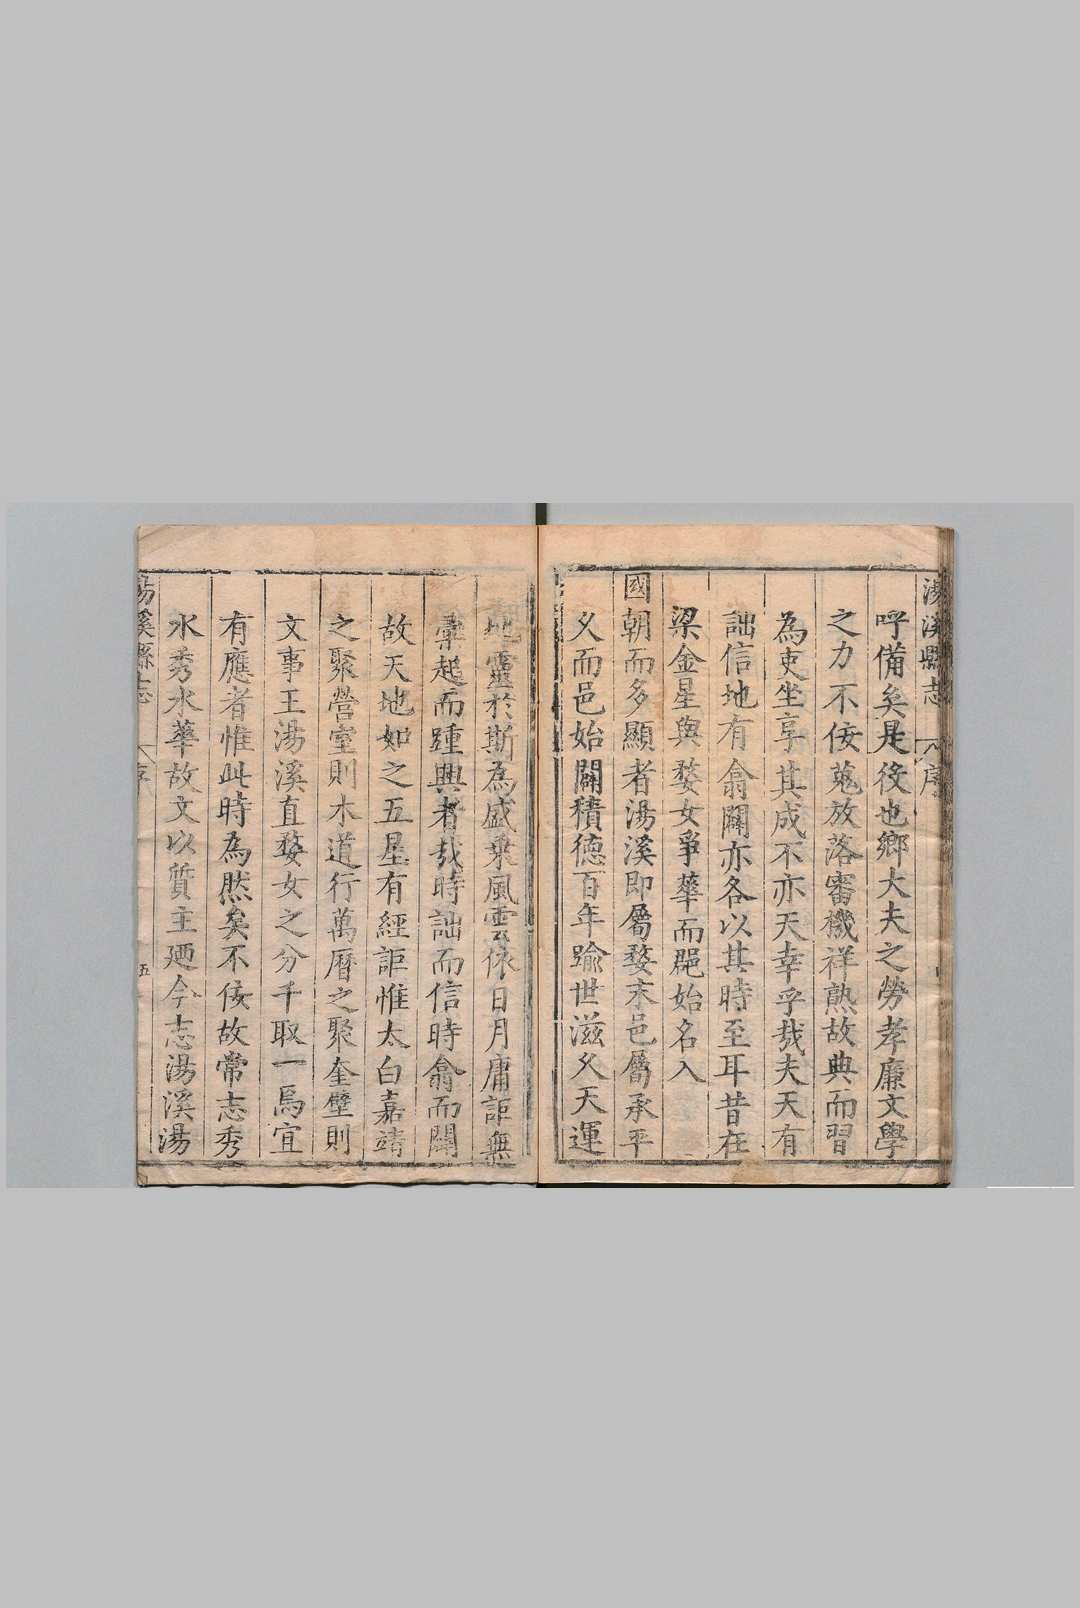 湯溪縣志 序
呼備矣是役也鄉大夫之勞孝廉文學
之力不佞蒐放落審機祥熟故典而習
為吏坐享其成不亦天幸乎哉夫天有
詘信地有翕闢亦各以其時至耳昔在
梁金星與婺女爭華而郡始名入
國朝而多顯者湯溪即屬婺末邑屬承平
久而邑始闢積德百年踰世滋久天運
地靈於斯為盛乗風雲依日月庸詎無
橐起而踵興者哉時詘而信時翕而闢
故天地如之五星有經詎惟太白嘉靖
之聚營室則木道行萬曆之聚奎壁則
文事王湯溪直婺女之分千取一焉宜
有應者惟此時為然矣不佞故常志秀
水秀水華故文以質主廼今志湯溪湯
湯溪縣志 序 五